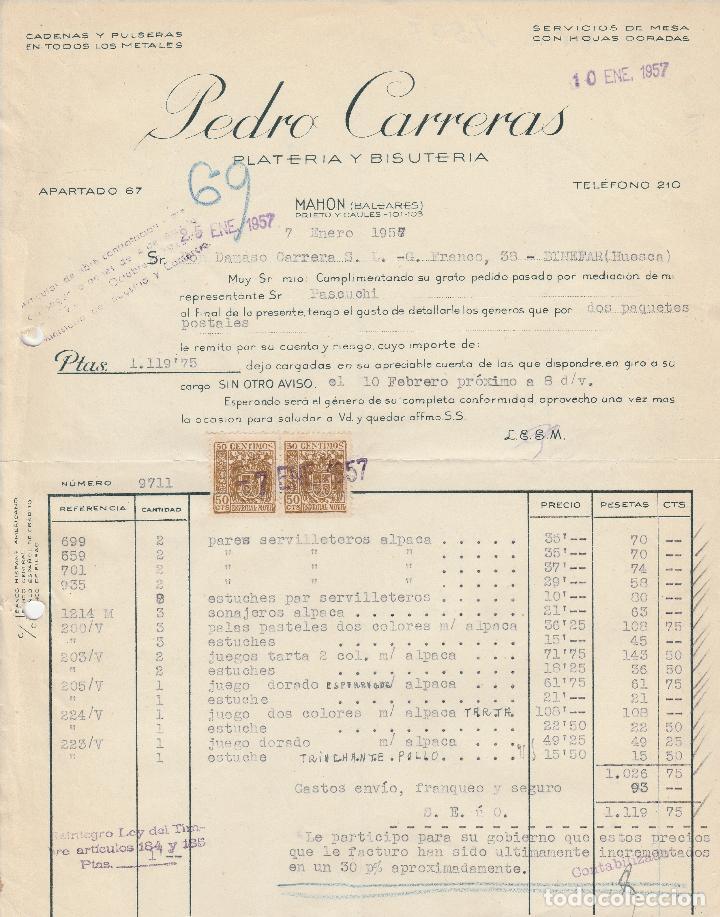 CADENAS Y PULSERAS
EN TODOS LOS METALES
SERVICIOS DE MESA
CON HOJAS DORADAS
10 ENE. 1957
Pedro Carreras
PLATERIA Y BISUTERIA
69
APARTADO 67
TELÉFONO 210
MAHON (BALEARES)
PRIETO Y CAULES-101-103
25 ENE. 1957
7 Enero 1957
Sr. Don Damaso Carrera S. L. -G. Franco, 38 - BINEFAR(Huesca)
Muy Sr mio: Cumplimentando su grato pedido pasado por mediación de mi
representante Sr Pascuchi
al final de la presente, tengo el gusto de detallarle los generos que por dos paquetes
postales
le remito por su cuenta y riesgo, cuyo importe de:
Ptas. 1.119'75 dejo cargadas en su apreciable cuenta de las que dispondre, en giro a su
cargo SIN OTRO AVISO. el 10 Febrero próximo a 8 d/v.
Esperando será el género de su completa conformidad aprovecho una vez mas
la ocasion para saludar a Vd. y quedar affmo. S.S.
L.E.S.M.
50 CENTIMOS 50 CENTIMOS
-7 ENE 1957
50 CTS ESPECIAL MOVIL 50 CTS ESPECIAL MOVIL
NÚMERO 9711
REFERENCIA CANTIDAD PRECIO PESETAS CTS
699 2 pares servilleteros alpaca . . . . . 35'-- 70 --
659 2 " " " . . . . . 35'-- 70 --
701 2 " " " . . . . . 37'-- 74 --
935 2 " " " . . . . . 29'-- 58 --
8 estuches par servilleteros . . . . . 10'-- 80 --
1214 M 3 sonajeros alpaca . . . . . 21'-- 63 --
200/V 3 palas pasteles dos colores m/ alpaca 36'25 108 75
" 3 estuches . . . . . 15'-- 45 --
203/V 2 juegos tarta 2 col. m/ alpaca . . . . 71'75 143 50
" 2 estuches . . . . . 18'25 36 50
205/V 1 juego dorado ESPARRAGOS alpaca . . . . 61'75 61 75
" 1 estuche . . . . . 21'-- 21 --
224/V 1 juego dos colores m/ alpaca TARTA 108'-- 108 --
" 1 estuche . . . . . 22'50 22 50
223/V 1 juego dorado m/ alpaca . . . . 49'25 49 25
" 1 estuche TRINCHANTE POLLO . . . . 15'50 15 50
1.026 75
Gastos envío, franqueo y seguro 93 --
S. E. ú O. 1.119 75
Reintegro Ley del Tim-
bre artículos 184 y 185
Ptas. 1'--
Le participo para su gobierno que estos precios
que le facturo han sido ultimamente incrementados
en un 30 p% aproximadamente.
Contabilizado
BANCO HISPANO AMERICANO
BANCO CENTRAL
BANCO ESPAÑOL DE CREDITO